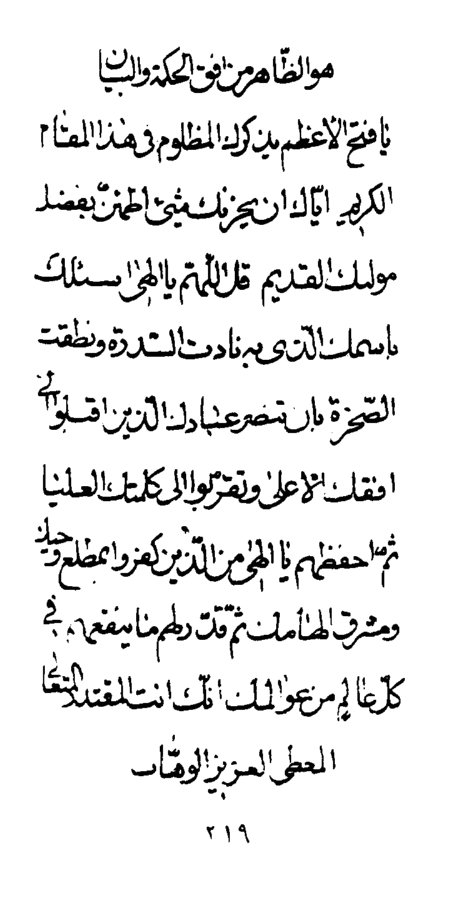 هو الظّاهر من افق الحكمة والبیان
یا فتح الاعظم یذکرك المظلوم فی هذا المقام
الکریم ایّاك ان یحزنك شیئ اطمئنّ بفضل
مولیك القدیم قل اللّهمّ یا الهی اسئلك
باسمك الّذی به نادت السّدرة ونطقت
الصّخرة بان تنصر عبادك الّذین اقبلوا الی
افقك الاعلی وتقرّبوا الی کلمتك العلیا
ثمّ احفظهم یا الهی من الّذین کفروا بمطلع وحیك
ومشرق الهامك ثمّ قدّر لهم ما ینفعهم فی
کلّ عالم من عوالمك انّك انت المقتدر المتعالی
المعطی العزیز الوهّاب
٢١٩